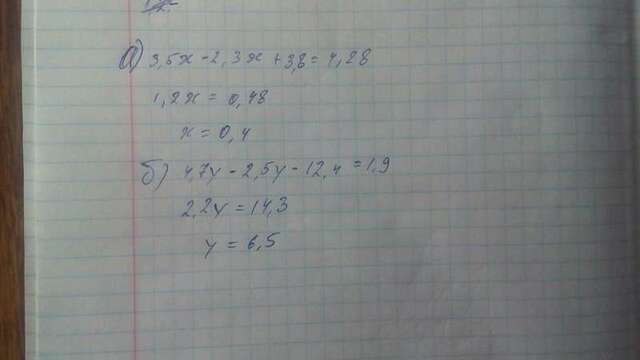 а) 3,5x - 2,3x + 3,8 = 4,28
1,2x = 0,48
x = 0,4
б) 4,7y - 2,5y - 12,4 = 1,9
2,2y = 14,3
y = 6,5